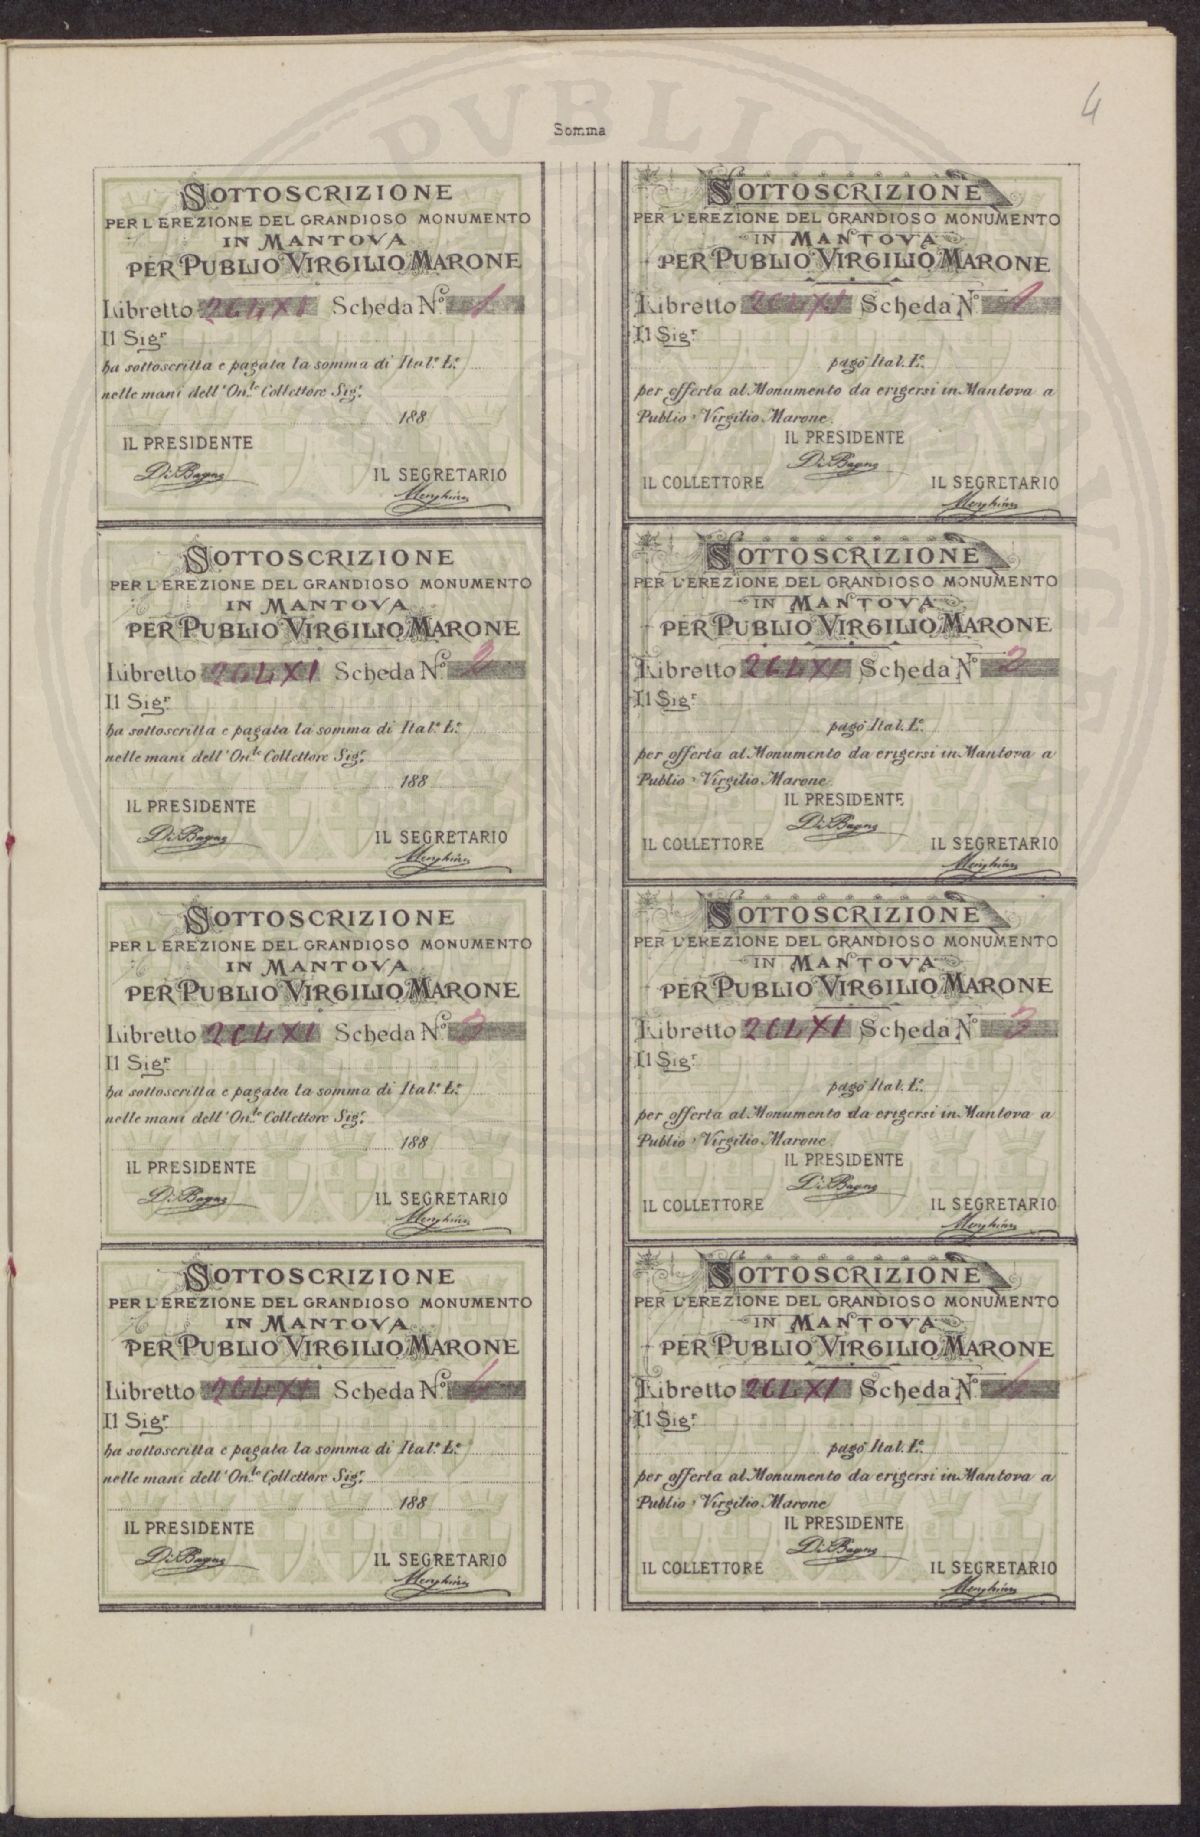 4
Somma
SOTTOSCRIZIONE
PER L'EREZIONE DEL GRANDIOSO MONUMENTO
IN MANTOVA
PER PUBLIO VIRGILIO MARONE
Libretto 264 XI Scheda N.º 1
Il Sig.r
ha sottoscritta e pagata la somma di Ital.e L.e
nelle mani dell'On.le Collettore Sig.r
188
IL PRESIDENTE
Di Bagno
IL SEGRETARIO
SOTTOSCRIZIONE
PER L'EREZIONE DEL GRANDIOSO MONUMENTO
IN MANTOVA
PER PUBLIO VIRGILIO MARONE
Libretto 264 XI Scheda N.º 1
Il Sig.r
pagò Ital. L.e
per offerta al Monumento da erigersi in Mantova a
Publio Virgilio Marone.
IL PRESIDENTE
Di Bagno
IL COLLETTORE IL SEGRETARIO
SOTTOSCRIZIONE
PER L'EREZIONE DEL GRANDIOSO MONUMENTO
IN MANTOVA
PER PUBLIO VIRGILIO MARONE
Libretto 264 XI Scheda N.º 2
Il Sig.r
ha sottoscritta e pagata la somma di Ital.e L.e
nelle mani dell'On.le Collettore Sig.r
188
IL PRESIDENTE
Di Bagno
IL SEGRETARIO
SOTTOSCRIZIONE
PER L'EREZIONE DEL GRANDIOSO MONUMENTO
IN MANTOVA
PER PUBLIO VIRGILIO MARONE
Libretto 264 XI Scheda N.º 2
Il Sig.r
pagò Ital. L.e
per offerta al Monumento da erigersi in Mantova a
Publio Virgilio Marone.
IL PRESIDENTE
Di Bagno
IL COLLETTORE IL SEGRETARIO
SOTTOSCRIZIONE
PER L'EREZIONE DEL GRANDIOSO MONUMENTO
IN MANTOVA
PER PUBLIO VIRGILIO MARONE
Libretto 264 XI Scheda N.º 3
Il Sig.r
ha sottoscritta e pagata la somma di Ital.e L.e
nelle mani dell'On.le Collettore Sig.r
188
IL PRESIDENTE
Di Bagno
IL SEGRETARIO
SOTTOSCRIZIONE
PER L'EREZIONE DEL GRANDIOSO MONUMENTO
IN MANTOVA
PER PUBLIO VIRGILIO MARONE
Libretto 264 XI Scheda N.º 3
Il Sig.r
pagò Ital. L.e
per offerta al Monumento da erigersi in Mantova a
Publio Virgilio Marone.
IL PRESIDENTE
Di Bagno
IL COLLETTORE IL SEGRETARIO
SOTTOSCRIZIONE
PER L'EREZIONE DEL GRANDIOSO MONUMENTO
IN MANTOVA
PER PUBLIO VIRGILIO MARONE
Libretto 264 XI Scheda N.º 4
Il Sig.r
ha sottoscritta e pagata la somma di Ital.e L.e
nelle mani dell'On.le Collettore Sig.r
188
IL PRESIDENTE
Di Bagno
IL SEGRETARIO
SOTTOSCRIZIONE
PER L'EREZIONE DEL GRANDIOSO MONUMENTO
IN MANTOVA
PER PUBLIO VIRGILIO MARONE
Libretto 264 XI Scheda N.º 4
Il Sig.r
pagò Ital. L.e
per offerta al Monumento da erigersi in Mantova a
Publio Virgilio Marone
IL PRESIDENTE
Di Bagno
IL COLLETTORE IL SEGRETARIO